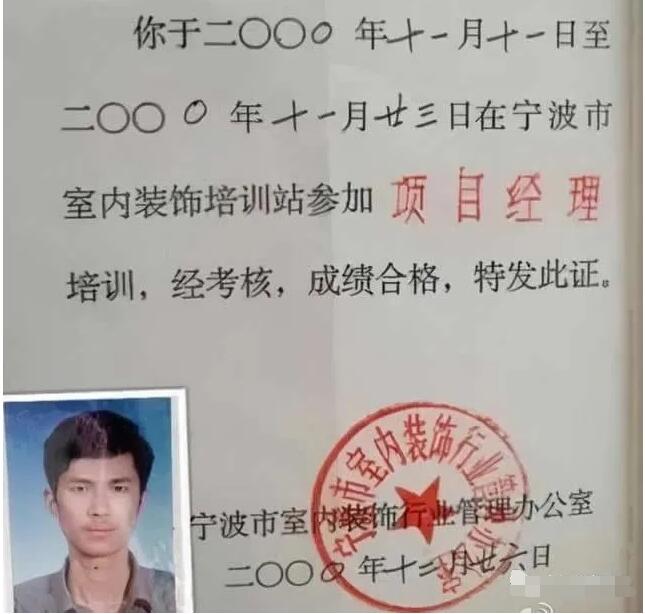 你于二〇〇〇年十一月十一日至
二〇〇〇年十一月廿三日在宁波市
室内装饰培训站参加项目经理
培训，经考核，成绩合格，特发此证。
宁波市室内装饰行业管理办公室
宁波市室内装饰行业管理办公室
二〇〇〇年十二月廿六日